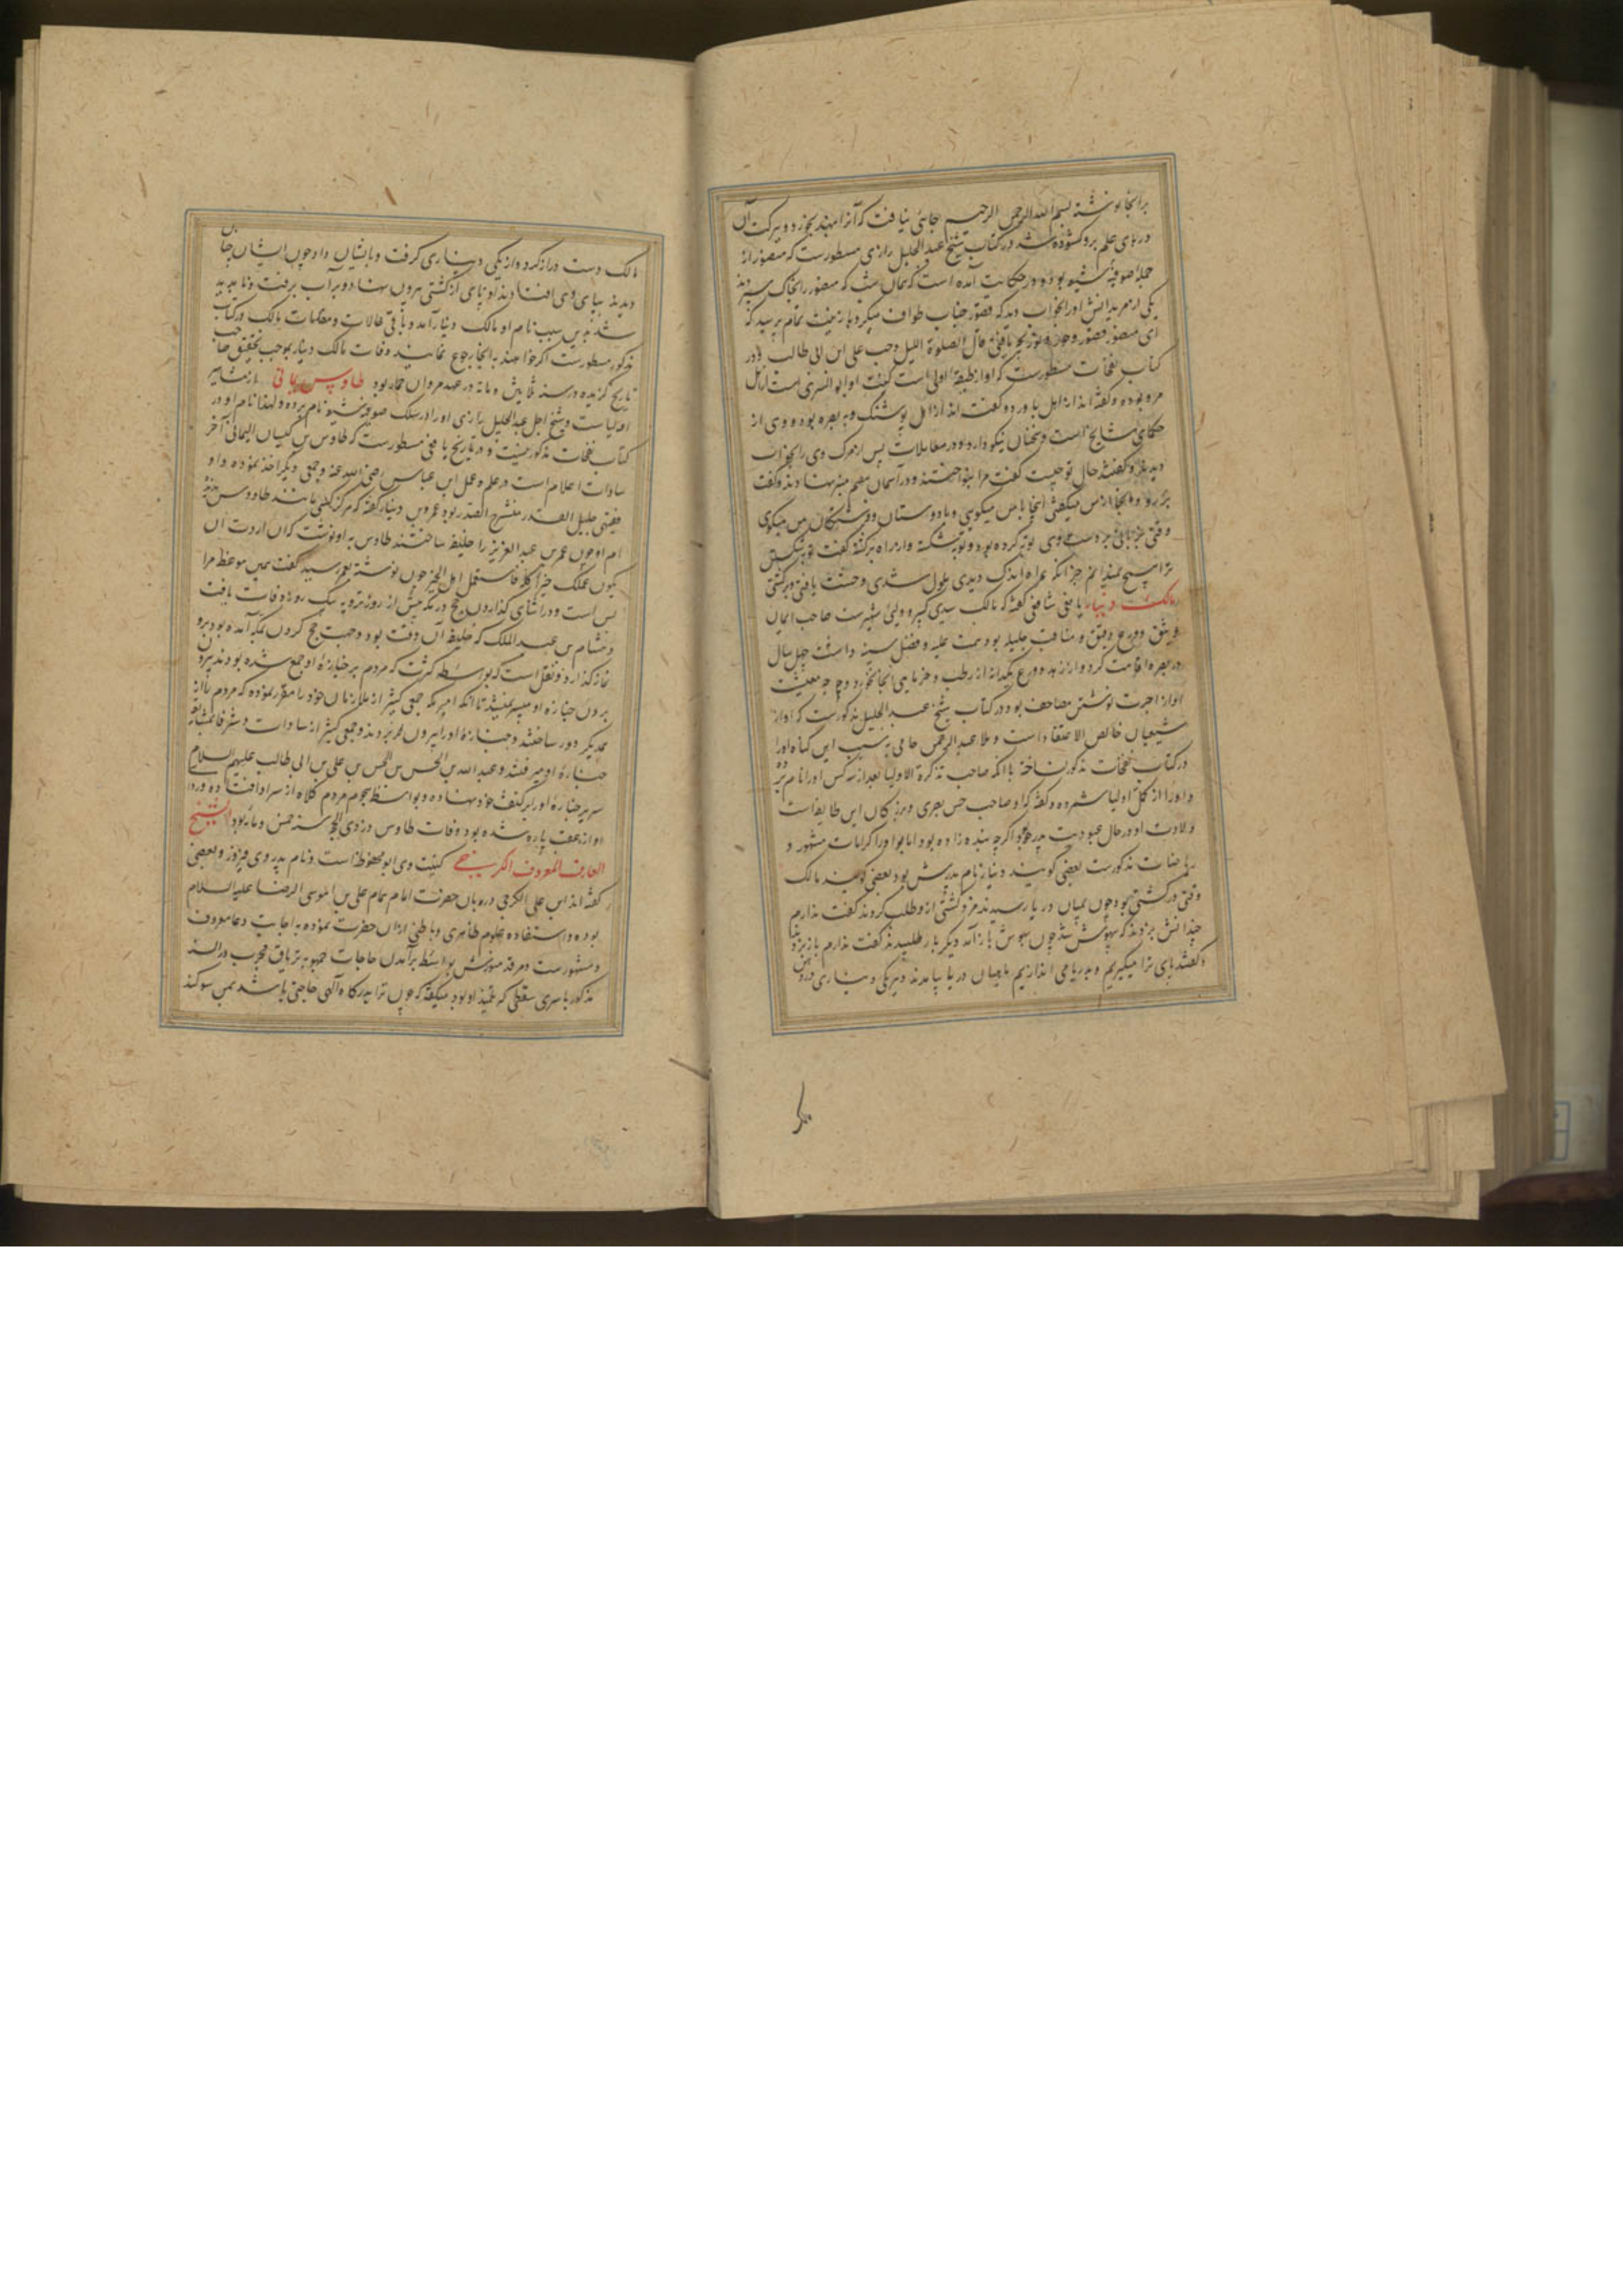 برانجا نوشته بسم الله الرحمن الرحیم جائی نیافت که آنرا بنهد بخورد و ببرکت آن
درهای علم برو کشوده شد در کتاب شیخ عبد الجلیل رازی مسطورست که منصور از
جمله صوفیه شیعه بوده و در حکایت آمده است که همان شب که منصور را بخاک سپردند
یکی از مریدانش اورا بخواب دید که
ای منصور قال الصلوة اللیل وحب علی ابن ابی طالب و در
کتاب نفحات مسطورست که او از طبقه اولی است کنیت او ابو السری است از اهل
مرو بوده و گفته اند از اهل باورد و گفته اند از اهل پوشنک و به بصره بوده و وی از
حکمای مشایخ است و سخنان نیکو دارد در معاملات پس از مرک وی را بخواب
دیدند و گفتند حال تو چیست گفت مرا بنواختند و در آسمان هفتم منبر نهادند و گفت
برو و انجا از من میگفتی اینجا با من میگوی و با دوستان و فرشتگان من میگوی
وقتی جوانی بر دست وی توبه کرده بود و توبه شکسته و از راه برگشته گفت
ترا هیچ نمیدانم جز آنکه همراه اندک دیدی ملول شدی و وحشت یافتی و برگشتی
مالک دینار یافعی شافعی گفته که مالک سیدی کبیر و ولی شهیرست صاحب ایمان
وثیق و ورع دقیق و مناقب جلیله بود همت علیه و فضل سنیه داشت چهل سال
در بصره اقامت کرد و از زهد و ورع یکدانه از رطب و خرمای آنجا نخورد و وجه معیشت
او از اجرت نوشتن مصاحف بود در کتاب شیخ عبد الجلیل مذکورست که او از
شیعیان خالص الاعتقاد است و ملا عبد الرحمن جامی بسبب این گناه اورا
در کتاب نفحات مذکور نساخته با آنکه صاحب تذکرة الاولیا بعد از سه کس اورا نام برده
و اورا از کمل اولیا شمرده و گفته که او صاحب حسن بصری و از بزرگان این طایفه است
ولادت او در حال عبودیت پدر بود اگرچه بنده زاده بود اما او را کرامات مشهور و
ریاضات مذکورست بعضی گویند دینار نام پدرش بود بعضی گویند مالک
وقتی در کشتی بود چون بمیان دریا رسیدند مزد کشتی از و طلب کردند گفت ندارم
چندانش بزدند که بیهوش شد چون بهوش باز آمد دیگر بار طلبیدند گفت ندارم باز بزدند
و گفتند پای ترا میگیریم و بدریا می اندازیم ماهیان دریا بیامدند و هر یکی دیناری در دهن
مالک دست دراز کرد و از یکی دیناری گرفت و بایشان داد چون ایشان چنان
دیدند بپای وی افتادند او پای از کشتی بیرون نهاد و بر آب برفت و ناپدید
شد بدین سبب نام او مالک دینار آمد و باقی حالات و مقامات مالک در کتاب
مذکور مسطورست اگر خواهند به انجا رجوع نمایند وفات مالک دینار بموجب تحقیق صاحب
تاریخ گزیده در سنه ثلاثین و مایه در عهد مروان حمار بود طاوس یمانی از مشاهیر
اولیاست و شیخ اجل عبد الجلیل رازی اورا در سلک صوفیه شیعه نام برده و لهذا نام او در
کتاب نفحات مذکور نیست و در تاریخ یافعی مسطورست که طاوس بن کیسان الیمانی آخر
سادات اعلام است در علم و عمل ابن عباس رضی الله عنه و جمعی دیگر اخذ نموده و او
فقیهی جلیل القدر منتشر الصدر بود عمرو بن دینار گفته که هرگز کسی مانند طاوس ندیده
ام و چون عمر بن عبد العزیز را خلیفه ساختند طاوس به او نوشت که ان اردت ان
یکون عملک خیرا کله فاستعمل اهل الخیر چون نوشته بعمر رسید گفت همین موعظه مرا
بس است و در اثنای گذاردن حج در مکه پیش از روز ترویه بیک روز وفات یافت
و هشام بن عبد الملک که خلیفه آن وقت بود و جهت حج کردن بمکه آمده بود برو
نماز گذارد و نقل است که بواسطه کثرت که مردم بر جنازه او جمع شده بودند بیرون
بردن جنازه او میسر نمیشد تا آنکه امیر مکه جمعی کثیر از ملازمان خود را مقرر نموده که مردم را از
یکدیگر دور ساختند و جنازه اورا بیرون بردند و جمعی کثیر از سادات و شرفا بمشایعه
جنازه او میرفتند و عبد الله بن الحسن بن الحسن بن علی بن ابی طالب علیهم السلام
سریر جنازه او را بر کتف خود نهاده و بواسطه هجوم مردم کلاه از سر او افتاده و ردا
او از عقب پاره شده بود وفات طاوس در ذی الحجه سنه خمس و مایه بود الشیخ
العارف المعروف الکرخی کنیت وی ابو محفوظ است و نام پدر وی فیروز و بعضی
گفته اند ابن علی الکرخی دربان حضرت امام همام علی بن الموسی الرضا علیه السلام
بوده و استفاده علوم ظاهری و باطنی از ان حضرت نموده به اجابت دعا معروف
و مشهورست و مرقد منورش بواسطه برآمدن حاجات جمهور به تریاق مجرب در السنه
مذکور با سری سقطی که تلمیذ او بود میگفته که چون ترا بدرگاه آلهی حاجتی باشد بمن سوگند